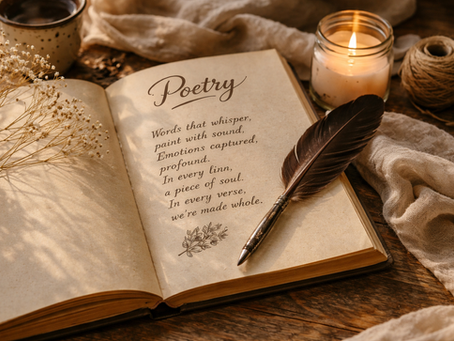 Poetry
Words that whisper,
paint with sound,
Emotions captured,
profound.
In every linn,
a piece of soul.
In every verse,
we're made whole.